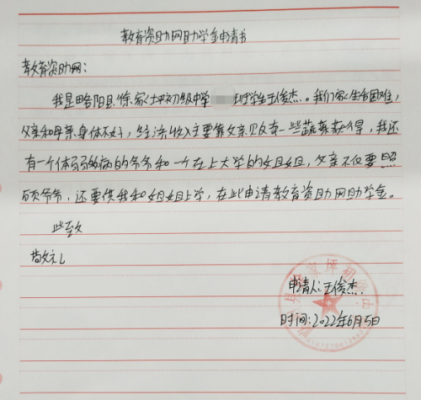 教育资助网助学金申请书
教育资助网:
我是略阳县徐家坪初级中学 班学生王俊杰。我们家生活困难,
父亲和母亲身体不好,经济收入主要靠父亲贩卖一些蔬菜获得,我还
有一个体弱多病的爷爷和一个在上大学的姐姐,父亲不仅要照
顾爷爷,还要供我和姐姐上学,在此申请教育资助网助学金。
此致
敬礼
申请人:王俊杰
时间:2022年6月5日